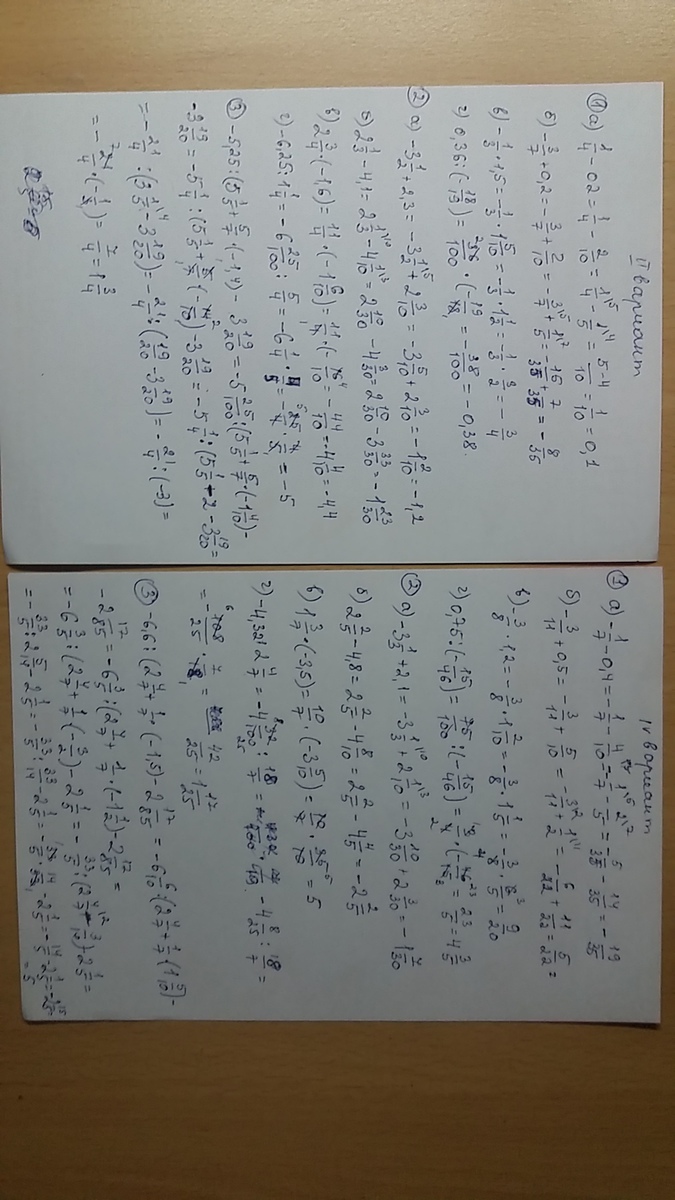 II вариант
① а) 1/4 - 0,2 = 1/4 - 2/10 = 1/4 - 1/5 = 5-4/10 = 1/10 = 0,1
б) -3/7 + 0,2 = -3/7 + 2/10 = -3/7 + 1/5 = -15/35 + 7/35 = -8/35
в) -1/3 · 1,5 = -1/3 · 1 5/10 = -1/3 · 1 1/2 = -1/3 · 3/2 = -3/4
г) 0,36 : (-18/19) = 36/100 · (-19/18) = -38/100 = -0,38.
② а) -3 1/2 + 2,3 = -3 1/2 + 2 3/10 = -3 5/10 + 2 3/10 = -1 2/10 = -1,2
б) 2 1/3 - 4,1 = 2 1/3 - 4 1/10 = 2 10/30 - 4 3/30 = 2 10/30 - 3 33/30 = -1 23/30
в) 2 3/4 · (-1,6) = 11/4 · (-1 6/10) = 11/4 · (-16/10) = -44/10 = -4 4/10 = -4,4
г) -6,25 : 1 1/4 = -6 25/100 : 5/4 = -6 1/4 · 4/5 = -25/4 · 4/5 = -5
③ -5,25 : (5 1/5 + 5/7 · (-1,4) - 3 19/20 = -5 25/100 : (5 1/5 + 5/7 · (-1 4/10) -
-3 19/20 = -5 1/4 : (5 1/5 + 5/7 · (-14/10) - 3 19/20 = -5 1/4 : (5 1/5 - 2 - 3 19/20 =
= -21/4 : (3 1/5 - 3 19/20) = -21/4 : (19/20 - 3 19/20) = -21/4 : (-3) =
= -21/4 · (-1/3) = 7/4 = 1 3/4
IV вариант
① а) -1/7 - 0,4 = -1/7 - 4/10 = -1/7 - 2/5 = -5/35 - 14/35 = -19/35
б) -3/11 + 0,5 = -3/11 + 5/10 = -3/11 + 1/2 = -6/22 + 11/22 = 5/22
в) -3/8 · 1,2 = -3/8 · 1 2/10 = -3/8 · 1 1/5 = -3/8 · 6/5 = 9/20
г) 0,75 : (-15/46) = 75/100 : (-15/46) = 3/4 · (-46/15) = 23/5 = 4 3/5
② а) -3 1/3 + 2,1 = -3 1/3 + 2 1/10 = -3 10/30 + 2 3/30 = -1 7/30
б) 2 2/5 - 4,8 = 2 2/5 - 4 8/10 = 2 2/5 - 4 4/5 = -2 2/5
в) 1 3/7 · (-3,5) = 10/7 · (-3 5/10) = 10/7 · 35/10 = 5
г) -4,32 : 2 4/7 = -4 32/100 : 18/7 = - 4 8/25 : 18/7 =
= -108/25 · 7/18 = 42/25 = 1 17/25
③ -6,6 : (2 4/7 + 1/7 · (-1,5) - 2 17/85 = -6 6/10 : (2 4/7 + 1/7 · (1 5/10) -
- 2 17/85 = -6 3/5 : (2 4/7 + 1/7 · (-1 1/2) - 2 17/85 =
= -6 3/5 : (2 4/7 + 1/7 (-3/2) - 2 1/5 = -33/5 : (2 4/7 - 3/14) - 2 1/5 =
= -33/5 : 2 5/14 - 2 1/5 = -33/5 : 33/14 - 2 1/5